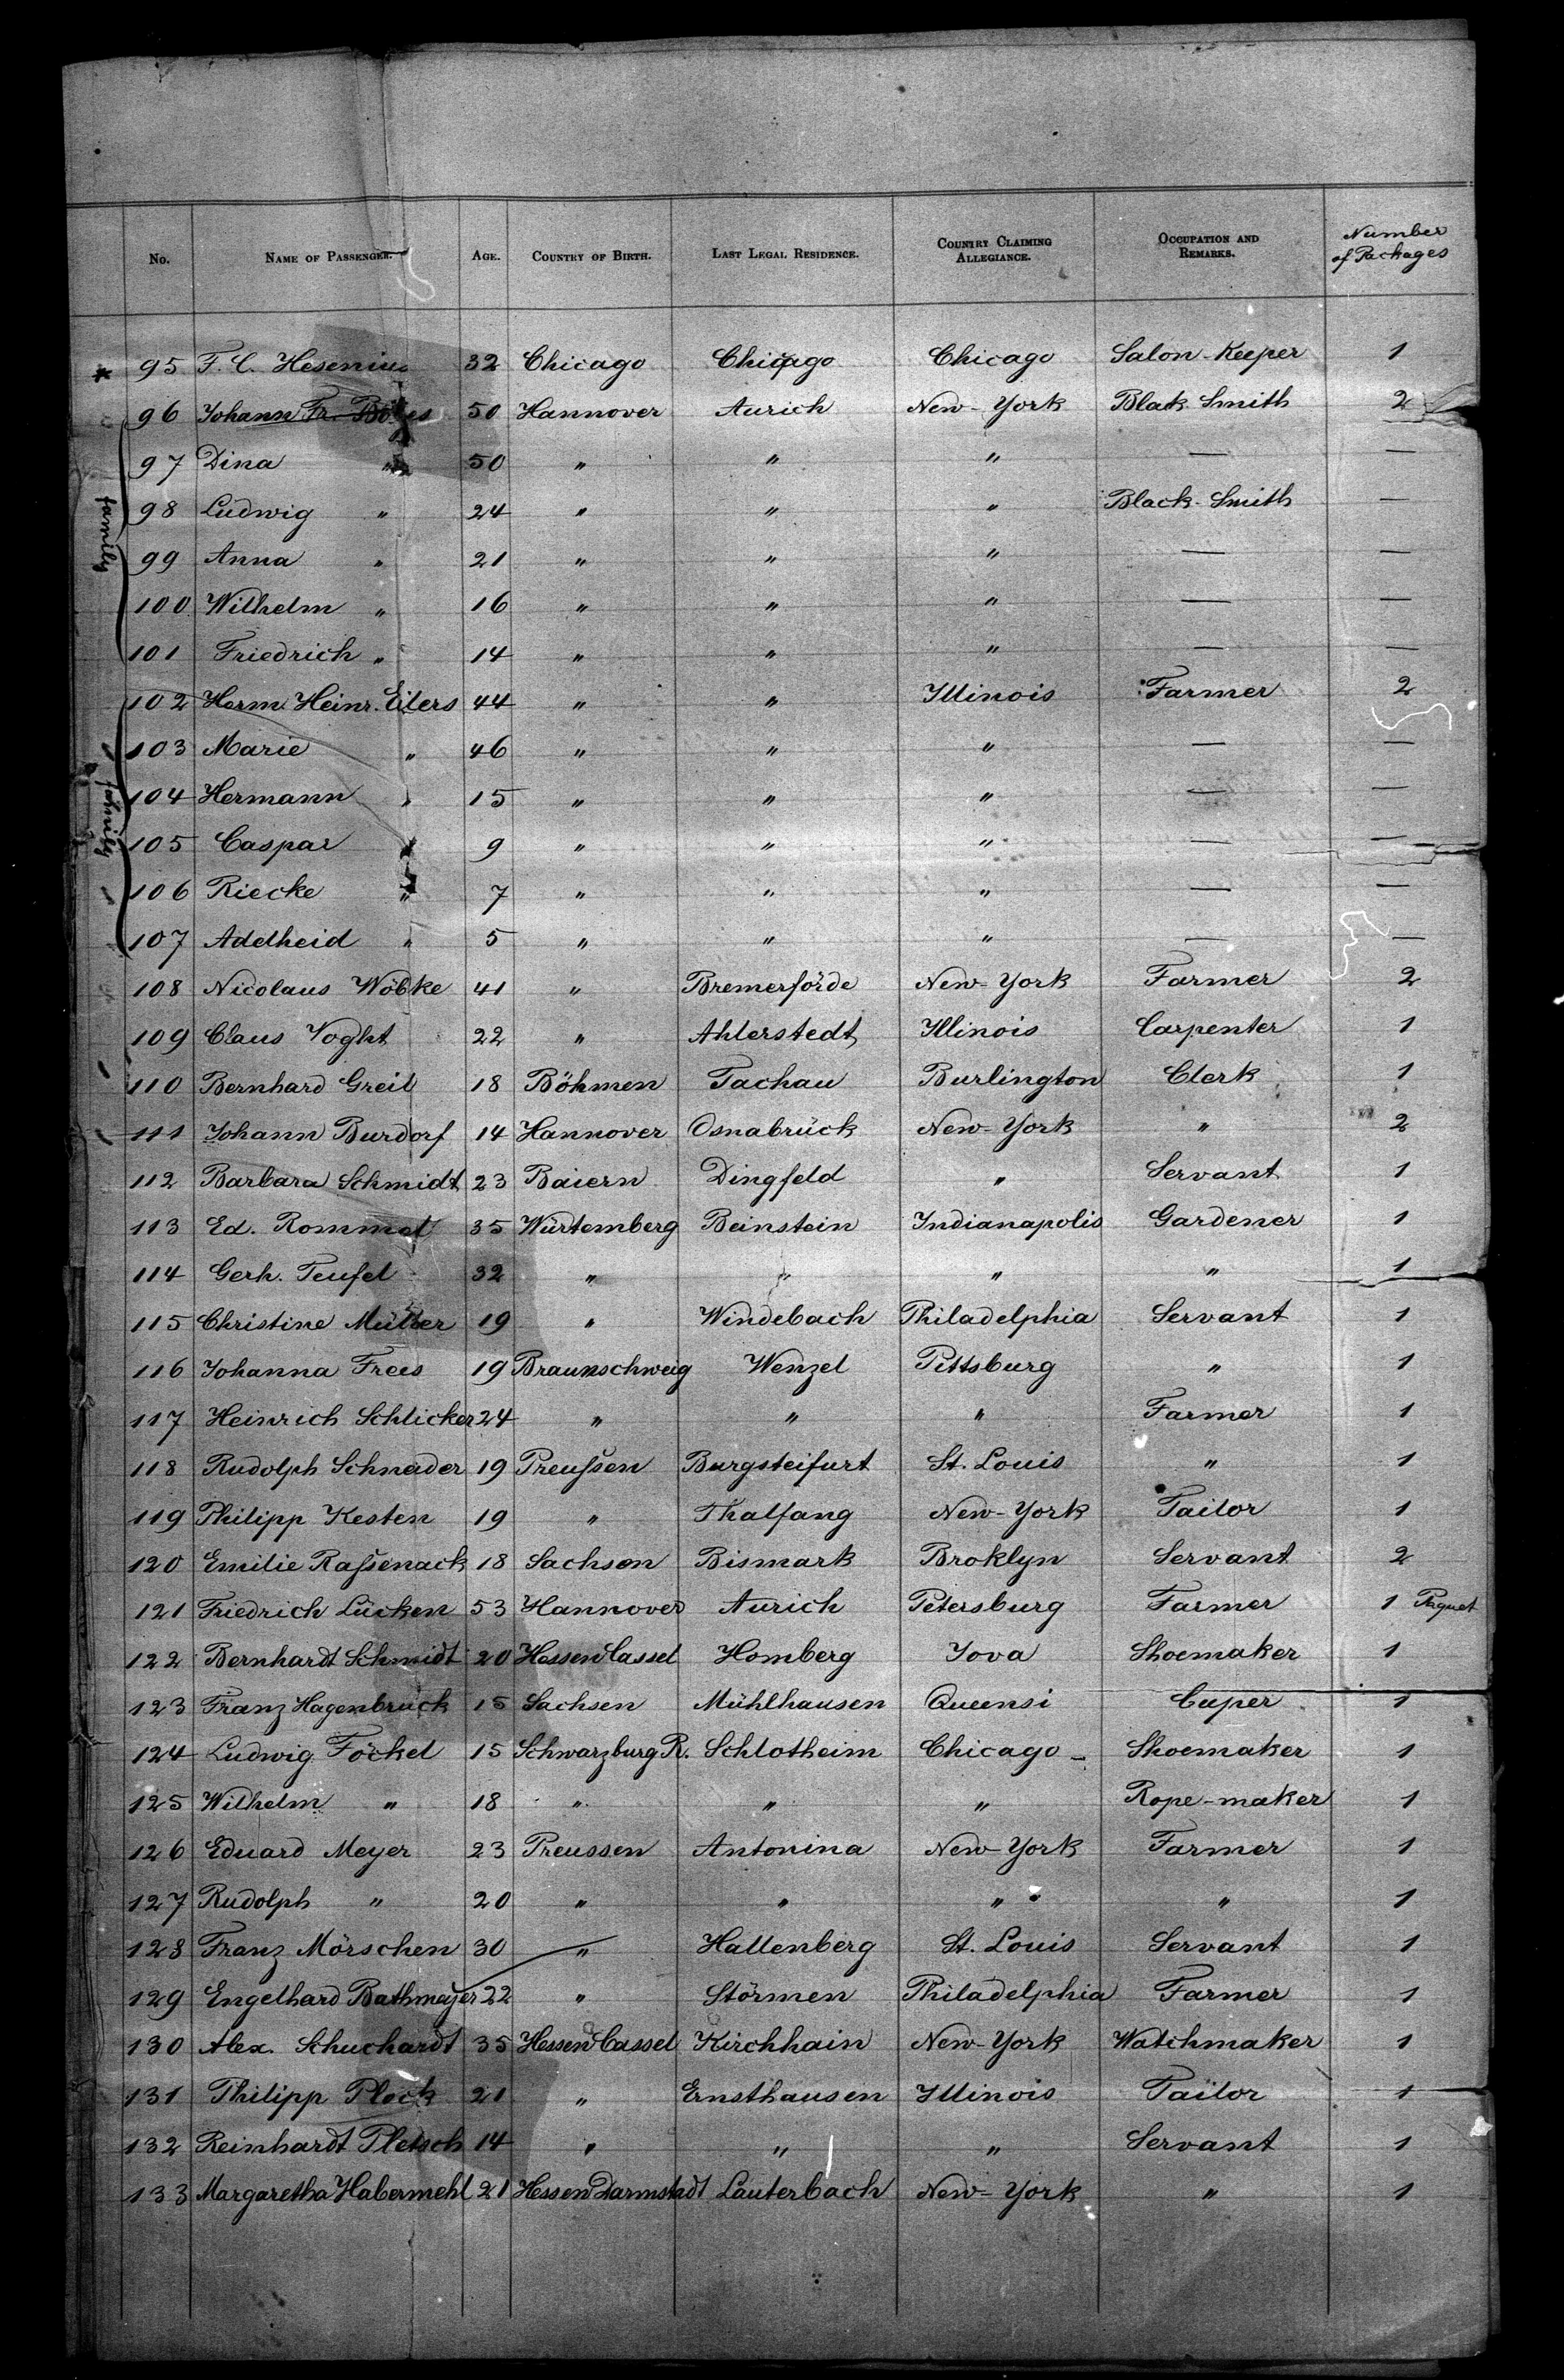 No. NAME OF PASSENGER. AGE. COUNTRY OF BIRTH. LAST LEGAL RESIDENCE. COUNTRY CLAIMING ALLEGIANCE. OCCUPATION AND REMARKS. Number of Packages
* 95 F. C. Hesenius 32 Chicago Chicago Chicago Salon-Keeper 1
96 Johann Fr. 50 Hannover Aurich New-York Blak Smith 2
family
97 Dina " 50 " " " — —
98 Ludwig " 24 " " " Black-Smith —
99 Anna " 21 " " " — —
100 Wilhelm " 16 " " " — —
101 Friedrich " 14 " " " — —
102 Herm. Heinr. Eilers 44 " " Illinois Farmer 2
family
103 Marie " 46 " " " — —
104 Hermann " 15 " " " — —
105 Caspar " 9 " " " — —
106 Riecke " 7 " " " — —
107 Adelheid " 5 " " " — —
108 Nicolaus Wöbke 41 " Bremerförde New-York Farmer 2
109 Claus Voght 22 " Ahlerstedt Illinois Carpenter 1
110 Bernhard Greil 18 Böhmen Tachau Burlington Clerk 1
111 Johann Burdorf 14 Hannover Osnabrück New-York " 2
112 Barbara Schmidt 23 Baiern Dingfeld " Servant 1
113 Ed. Rommel 35 Würtemberg Beinstein Indianapolis Gardener 1
114 Gerh. Teufel 32 " " " " 1
115 Christine Müller 19 " Windebach Philadelphia Servant 1
116 Johanna Frees 19 Braunschweig Wenzel Pittsburg " 1
117 Heinrich Schlicker 24 " " " Farmer 1
118 Rudolph Schneider 19 Preußen Burgsteifurt St. Louis " 1
119 Philipp Kesten 19 " Thalfang New-York Tailor 1
120 Emilie Raßenack 18 Sachsen Bismark Broklyn Servant 2
121 Friedrich Lücken 53 Hannover Aurich Petersburg Farmer 1 Paquet
122 Bernhardt Schmidt 20 Hessen Cassel Homberg Iova Shoemaker 1
123 Franz Hagenbruck 15 Sachsen Mühlhausen Queensi Cuper 1
124 Ludwig Föckel 15 Schwarzburg R. Schlotheim Chicago - Shoemaker 1
125 Wilhelm " 18 " " " Rope-maker 1
126 Eduard Meyer 23 Preussen Antonina New-York Farmer 1
127 Rudolph " 20 " " " " 1
128 Franz Mörschen 30 " Hallenberg St. Louis Servant 1
129 Engelhard Bathmeyer 22 " Störmen Philadelphia Farmer 1
130 Alex. Schuchardt 35 Hessen Cassel Kirchhain New-York Watchmaker 1
131 Philipp Plock 21 " Ernsthausen Illinois Tailor 1
132 Reinhardt Pletsch 14 " " " Servant 1
133 Margaretha Habermehl 21 Hessen Darmstadt Lauterbach New-York " 1